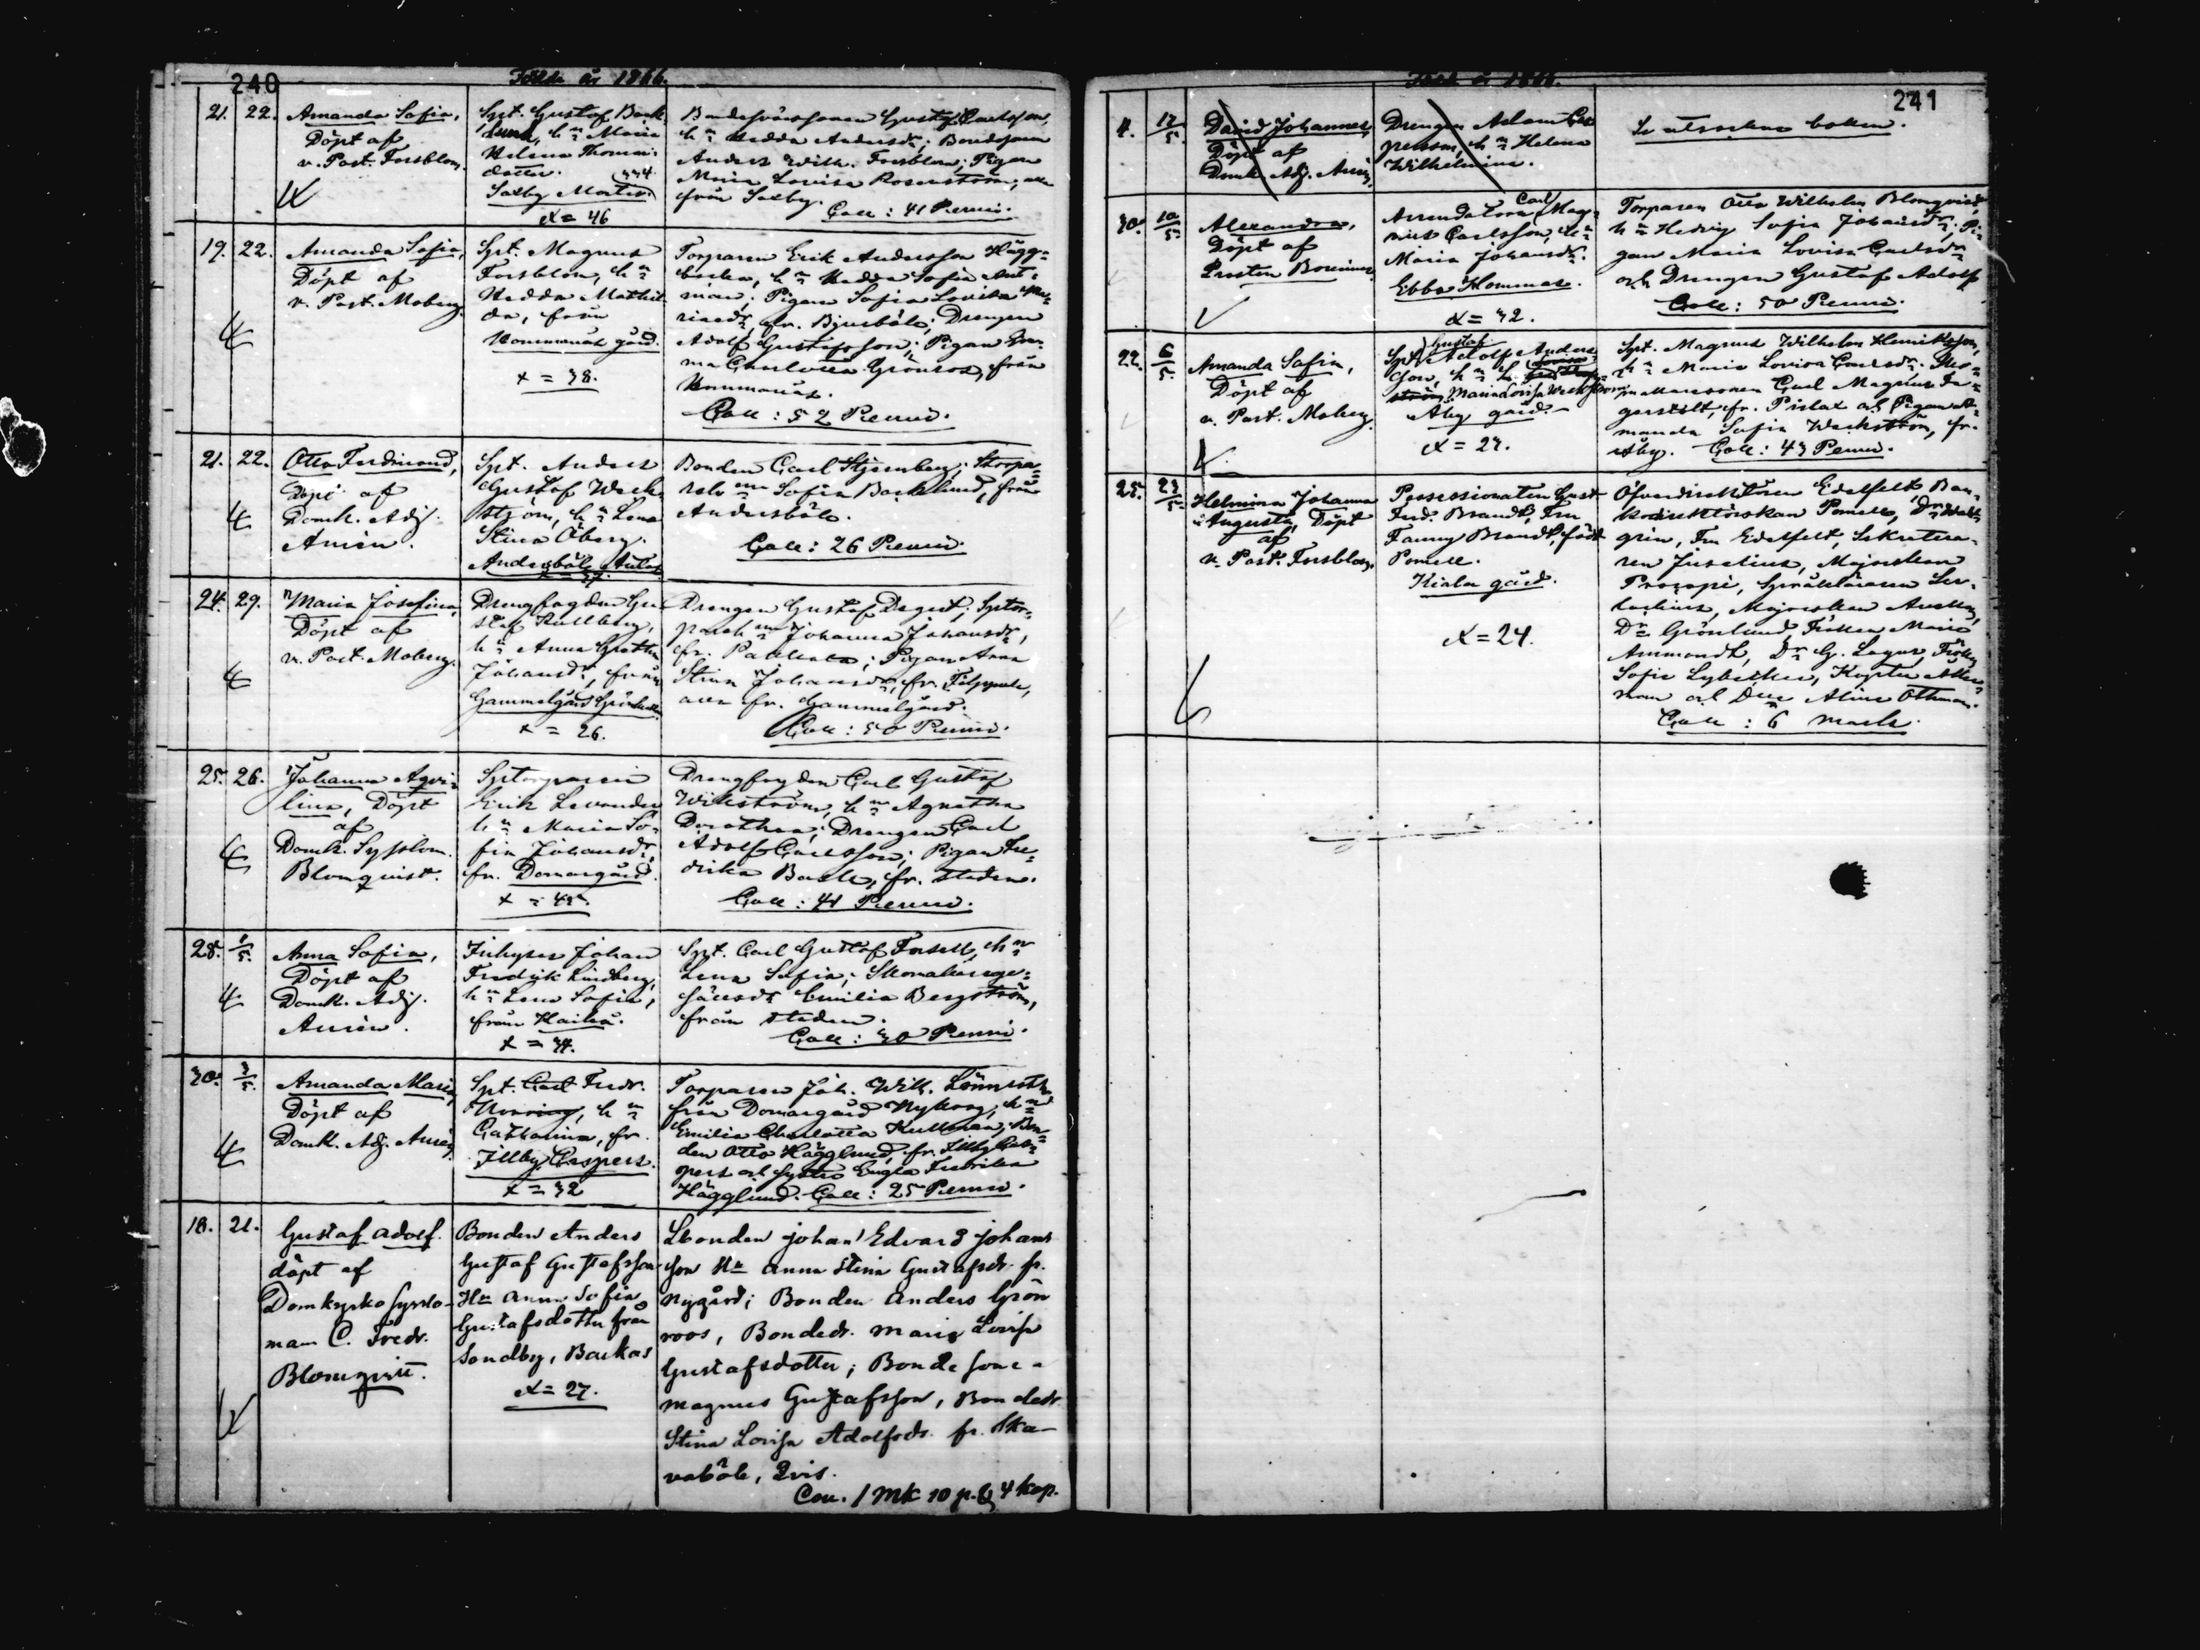 240
Födde år 1866.
21. 22. Amanda Sofia,
Döpt af
v. Past. Forsblom.
Spt. Gustaf Back
lund, h:n Maria
Helena Thomas-
dotter.
Saxby Mortes.
x = 46
Bondesvärsonen Gustaf Carlsson,
h:n Hedda Andersdr; Bondesonen
Anders Wilh. Forsblom; Pigan
Maria Lovisa Rosenström; alla
från Saxby. Coll: 41 Penni.
19. 22. Amanda Sofia,
Döpt af
v. Past. Moberg.
Spt. Magnus
Forsblom, h:n
Hedda Mathil
da, från
Kommonäs gård.
x = 38.
Torparen Erik Andersson Hägg-
h:n Hedda Sofia
Pigan Sofia Lovisa
fr. Bjurböle; Drengen
Adolf Gustafsson; Pigan
Carlotta Grönros, från
Kommonäs.
Coll: 52 Penni.
21. 22. Otto Ferdinand,
Döpt af
Domk. Adj.
Amén.
Spt. Anders
Gustaf Weck
ström, h:n Lena
Stina Öberg.
Andersböle
Bonden Carl Stjernberg;
Sofia Backlund, från
Andersböle.
Coll: 26 Penni.
24. 29. Maria Josefina,
Döpt af
v. Past. Moberg.
Drengfogden Gu
staf Kullberg,
h:n Anna Greta
Johansdr, från
Gammelgård
x = 26.
Drengen Gustaf Degert;
Johanna Johansdr,
fr. Pigan Anna
Stina Johansdr, fr.
alla fr. Gammelgård.
Coll: 50 Penni.
25. 26. Johanna Aqvi-
lina, Döpt
af
Domk. Sysslom.
Blomqvist.
Sptorparen
Erik Levander
h:n Maria So-
fia Johansdr,
fr. Domargård.
x = 42.
Drengfogden Carl Gustaf
Wikström, h:n Agnetha
Dorothea; Drengen Carl
Adolf Carlsson; Pigan Fre-
drika Back, fr. staden.
Coll: 41 Penni.
28. 1/5. Anna Sofia,
Döpt af
Domk. Adj.
Amén.
Inhyses Johan
Fredrik Lindberg,
h:n Lena Sofia,
från Haiko.
Spt. Carl Gustaf Forsell, h:n
Lena Sofia; Skomakarege-
sällsdr Emilia Bergström,
från staden.
Coll: 30 Penni.
30. 3/5. Amanda Maria,
Döpt af
Domk. Adj. Amén.
Spt. Carl Fredr.
h:n
Catharina, fr.
Illby Caspers.
x = 32
Torparen Joh. Wilh. Lönnroth
från Domargård Nykorg, h:n
Emilia Charlotta Kullman; Bon-
den Otto Hägglund, fr. Illby Cas-
pers och Eugla Fredrika
Hägglund. Coll: 25 Penni.
18. 21. Gustaf Adolf.
döpt af
Domkyrko Sysslo-
man C. Fredr.
Blomqvist.
Bonden Anders
Gustaf Gustafsson
H:n Anna Sofia
Gustafsdotter från
Sondby, Backas
x = 27.
Lbonden Johan Edvard Johans
son H:n Anna Stina Gustafsdr. fr.
Nygård; Bonden Anders Grön
roos, Bondedr. Maria Lovisa
Gustafsdotter; Bondesone-
Magnus Gustafsson, Bondedr.
Stina Lovisa Adolfsdr. fr. Ska-
vaböle, Qvis.
Con. 1 mk 10 p. & 4 kop.
241
Född år 1866.
4. 12/5. David Johannes,
Döpt af
Domk. Adj. Amén.
Drengen Adam Cas
persson, h:n Helena
Wilhelmina.
Se utsocknes boken.
30. 10/5. Alexandra,
Döpt af
Prosten Borenius.
Arrendatorn Carl Mag-
nus Carlsson, h:n
Maria Johansdr.
Ebbo Hommas.
x = 32.
Torparen Otto Wilhelm Blomqvist,
h:n Hedvig Sofia Johansdr; Pi-
gan Maria Lovisa Carlsdr
och Drengen Gustaf Adolf
Coll: 50 Penni.
22. 6/5. Amanda Sofia,
Döpt af
v. Past. Moberg.
Spt. Gustaf Adolf Anders
son, h:n
Maria Lovisa Weckström
Åby gård.
x = 27.
Spt. Magnus Wilhelm Henriksson,
h:n Maria Lovisa Carlsdr. Sko-
makaresonen Carl Magnus
fr. Pirlax och Pigan A-
manda Sofia Weckström, fr.
Åby. Coll: 43 Penni.
25. 23/5. Helmina Johanna
Augusta, Döpt
af
v. Past. Forsblom.
Possessionaten Gust.
Ferd. Brandt, Fru
Fanny Brandt, född
Pomell.
Kiala gård.
x = 24.
Öfverdirektören Edelfelt, Ban-
kodirektörskan Pomell, Dr Wahl
grén, Fru Edelfelt, Sekretera-
ren Juselius, Majorskan
Prozopé, Språkläraren
Majorskan
Dr Grönlund, Fröken Marie
Ammondt, Dr G. Lagus, Fröken
Sofie Lybecker, Kapten Åker-
man och Dlle Aline Othman.
Coll: 6 mark.